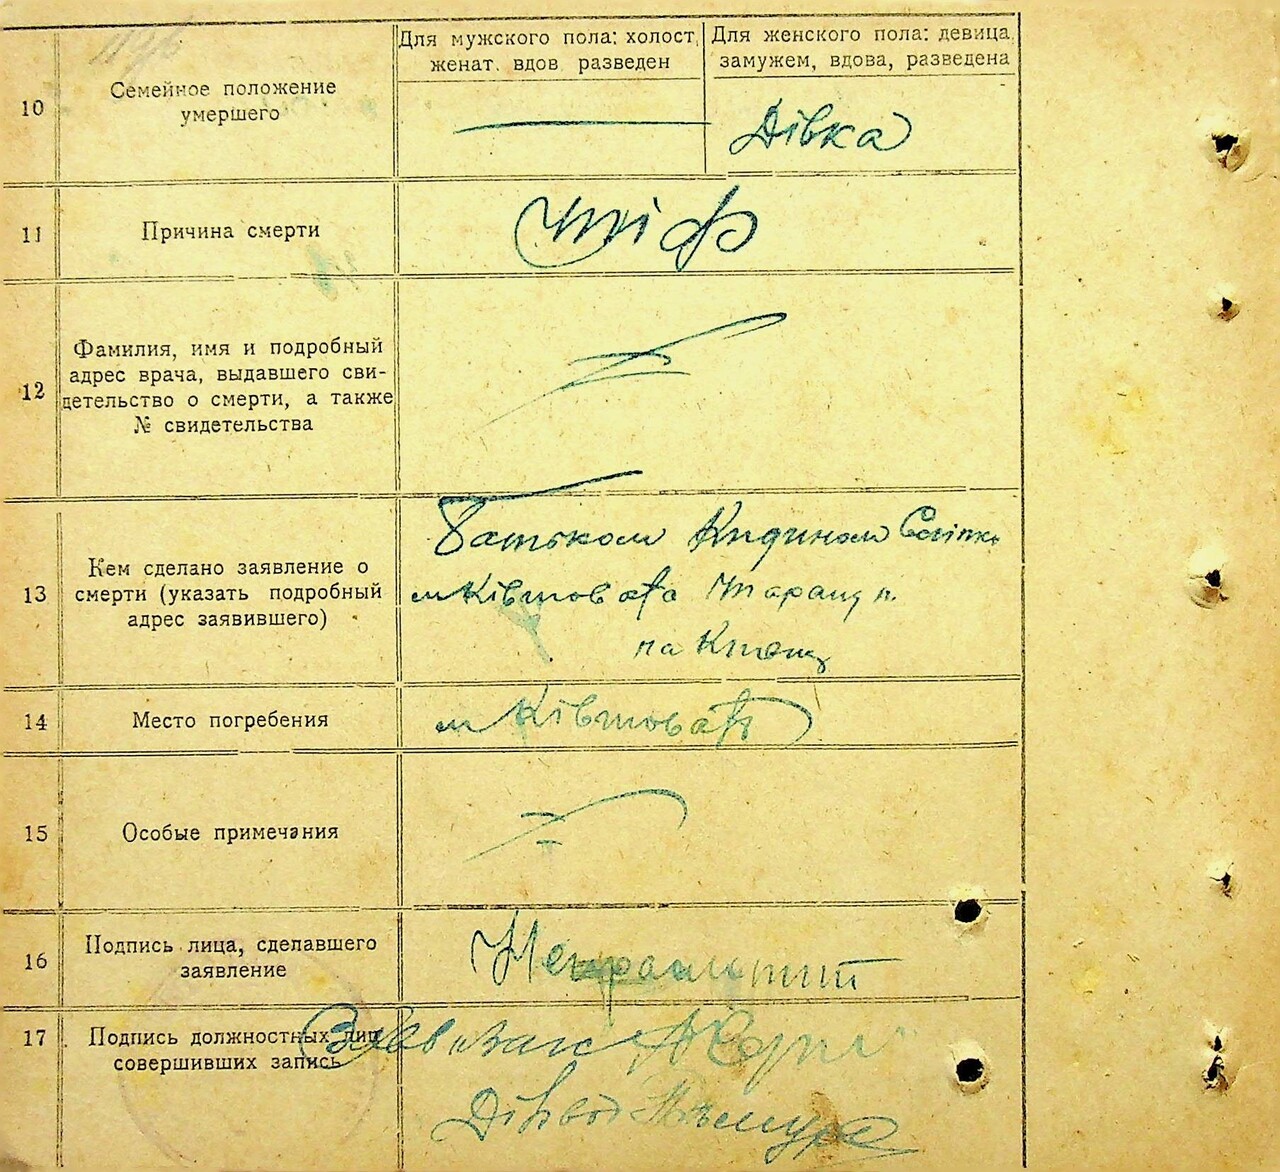 10
Семейное положение
умершего
Для мужского пола: холост,
женат, вдов разведен
Для женского пола: девица,
замужем, вдова, разведена
Дівка
11
Причина смерти
Тіф
12
Фамилия, имя и подробный
адрес врача, выдавшего сви-
детельство о смерти, а также
№ свидетельства
13
Кем сделано заявление о
смерти (указать подробный
адрес заявившего)
Батьком
м Ківшовата Таращ р.
на Київщ
14
Место погребения
м Ківшовата
15
Особые примечания
16
Подпись лица, сделавшего
заявление
Неграмотний
17
Подпись должностных лиц
совершивших запись
Зав
Діловод